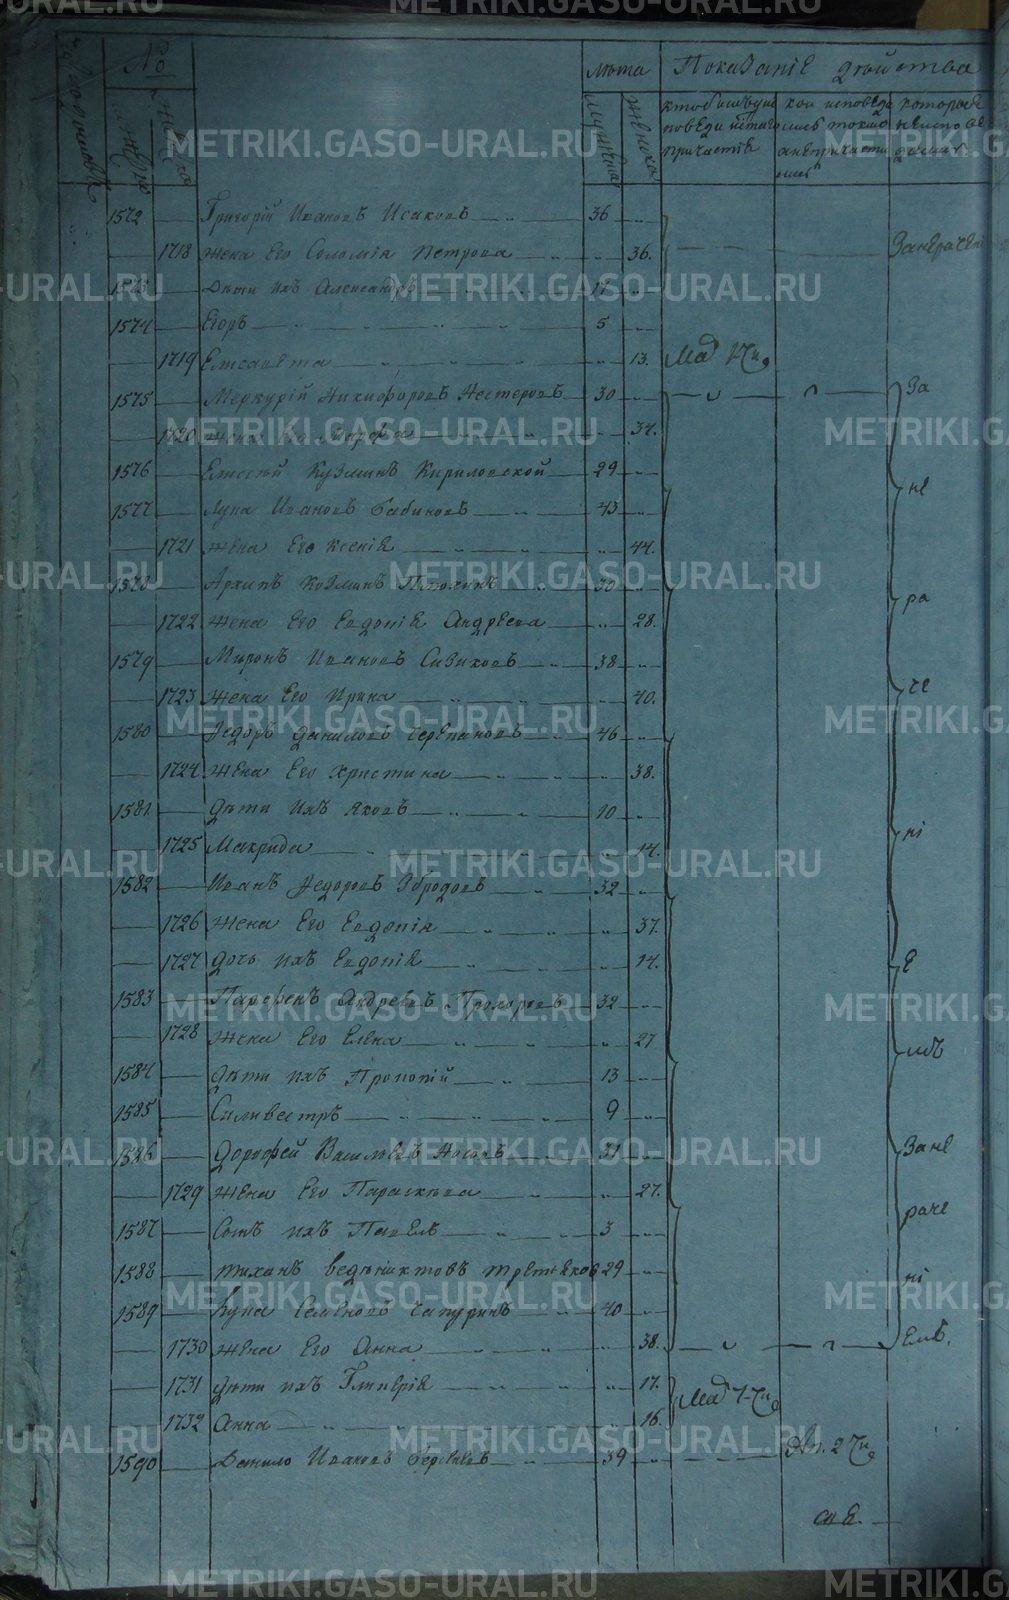 №
Лѣта Показаніе дѣйства
Мужеска Женска
кто былъ у исповеди и с.таго причастія
кои исповедалис токмо а не причастилис
которые не исповедалис
1572 Григорій Ивановъ Исаковъ 36
1718 Жена Его Соломія Петрова 36. Занераченіе
1573 Дѣти ихъ Александръ 17
1574 Егоръ 5
1719 Елисавета 13. Маd
1575 Меркурій Никифоровъ Нестеровъ 30 За
1720 Жена Его Марфа 34.
1576 Елисѣй Кузминъ Кириловской 29 не
1577 Лука Ивановъ Бабиновъ 43
1721 Жена Его Ксенія 44.
1578 Архипъ Козминъ 30 ра
1722 Жена Его Евдокія Андрѣева 28.
1579 Миронъ Ивановъ Сизиковъ 38
1723 Жена Его Ирина 40. че
1580 Ѳедоръ Даниловъ Черепановъ 46
1724 Жена Его Христина 38.
1581 Дѣти ихъ Яковъ 10 ні
1725 Макрида 14.
1582 Иванъ Ѳедоровъ 32
1726 Жена Его Евдокія 37.
1727 Дочь ихъ Евдокія 14. Е
1583 Парфенъ Андреевъ Прохоровъ 32
1728 Жена Его Елена 27 мъ
1584 Дѣти ихъ Прокопій 13
1585 Силивестръ 9
1586 Дорофей Василіевъ Носовъ 31 Зане
1729 Жена Его Параскѣва 27. раче
1587 Сынъ ихъ Павелъ 3
1588 Тиханъ Ведѣниктовъ Третьяков 29 ні
1589 Лука Семеновъ Чапуринъ 40
1730 Жена Его Анна 38. Емъ.
1731 Дѣти ихъ Гликерія 17. Маd
1732 Анна 16.
1590 Данило Ивановъ 39 Ап. 2 Чи
METRIKI.GASO-URAL.RU